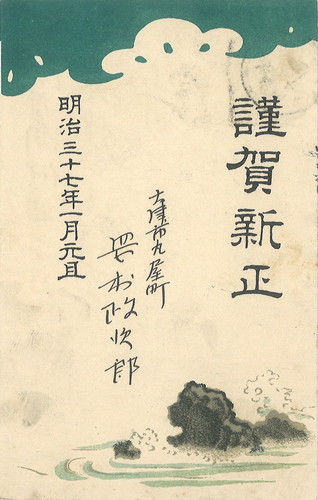 謹賀新正
明治三十七年一月元旦
大津市丸屋町
政次郎